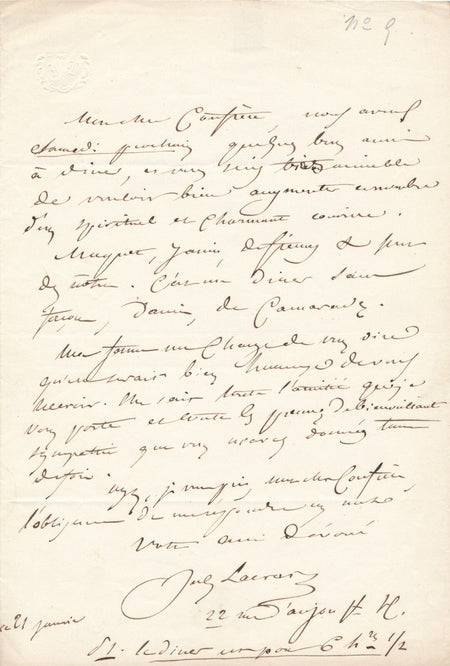 No 9
Mon cher Confrère, nous avons
samedi prochain quelques bons amis
à dîner, et vous serez bien aimable
de vouloir bien augmenter ce nombre
d'un spirituel et charmant convive.
Maquet, Janin, de Fiennes &
des nôtres. C'est un dîner sans
façon, d'amis, de Camarades.
Ma femme me charge de vous dire
qu'elle serait bien heureuse de vous
recevoir. toute l'amitié que je
vous porte et toutes les preuves de bienveillante
sympathie que vous m'avez données tant
de fois.
je vous prie, mon cher Confrère
l'obligeance de me répondre un mot
Votre ami dévoué
Jules Lacroix
22 rue d'anjou St H.
ce 21 janvier
PS. le dîner est pour 6 hres 1/2